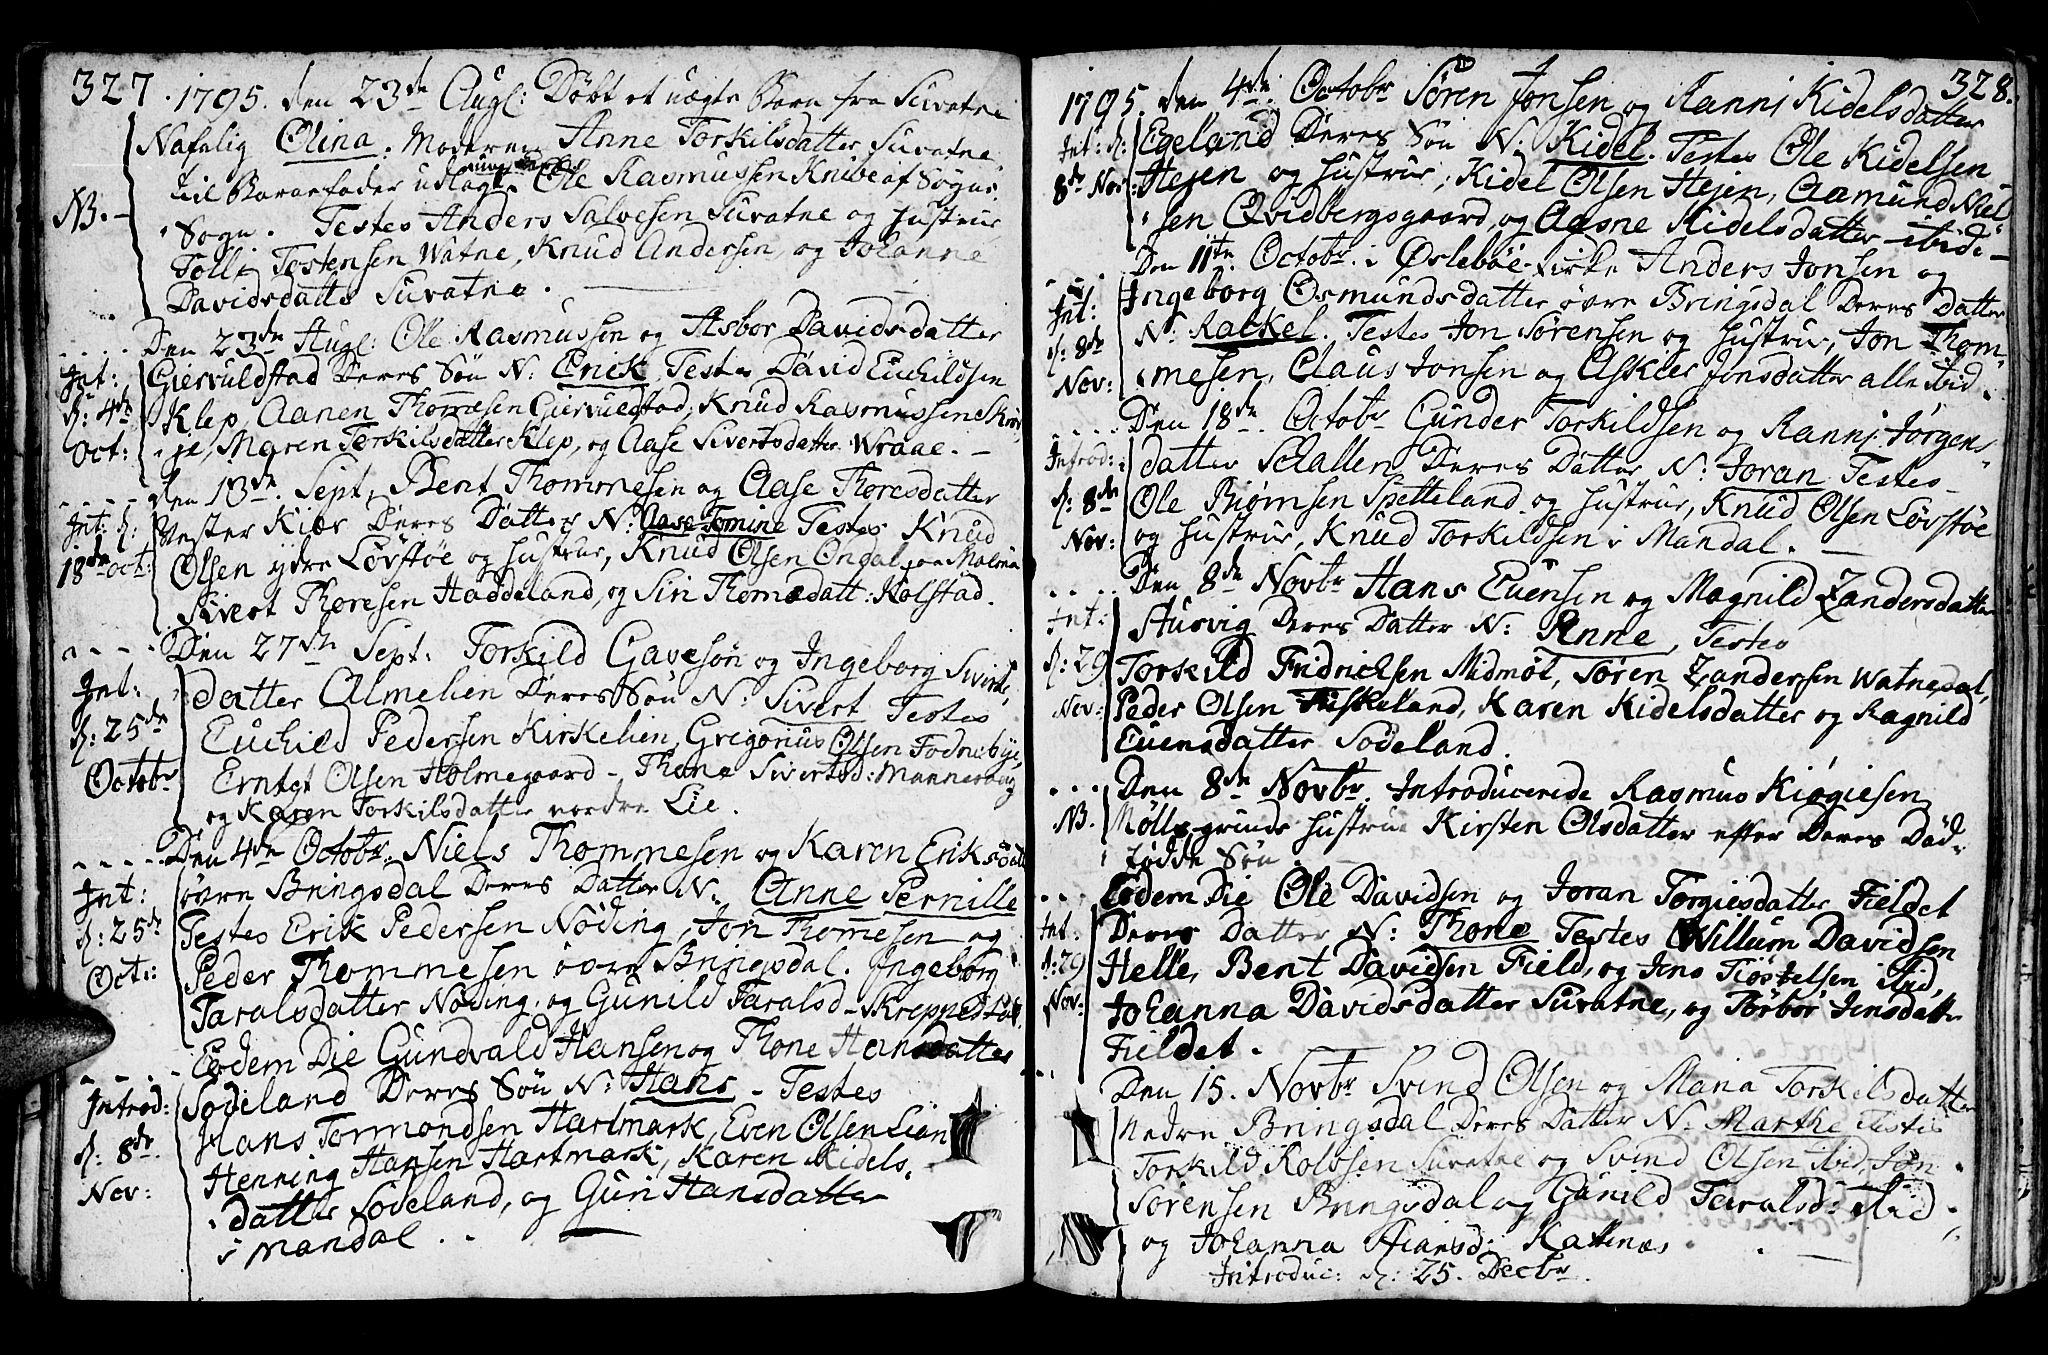 327. 1795. den 23de Augl: Döbt et uægte Barn fra Suvatne
Nafnlig Olina. Moderen Anne Torkilsdatter Suvatne
til Barnefader udlagt Ole Rasmussen Knibe af Søgne
NB. Sogn. Testes Anders Salvesen Suvatne og Hustrue,
Tolle Tostensen Watne, Knud Andersen, og Johanna
Davidsdatter Suvatne.
Den 23de Augl: Ole Rasmussen og Asbor Davidsdatter
Int: Giervuldstad Deres Søn N: Erick, Testes David Euchildsen
d: 4de Klep, Aanen Thommesen Giervuldstad, Knud Rasmussen
Oct: je, Maren Torkilsdatter Klep, og Aase Sivertsdatter Wraae.
den 13de Sept, Bent Thommesen og Aase Thoresdatter
Int: d: Vester Kiær Deres Datter N: Aase Tomine Testes Knud
18de Oct: Olsen ydre Løvstøe og Hustrue, Knud Olsen Ondal
Sivert Thoresen Haddeland, og Siri Thomædatt: Holstad.
Den 27de Sept: Torkild Gavesøn og Ingeborg Sivirts
Int: datter Almelien Deres Søn N: Sivert Testes
d: 25de Euchild Pedersen Kirkelien, Gregorius Olsen Fodnebye,
Octobr Erntgt Olsen Holmegaard, Thone Sivertsd: Mannevaag
og Karen Torkilsdatter nordre Lie.
Den 4de Octobr. Niels Thommesen og Karen Eriksdatt
Int: øvre Bringsdal Deres Datter N: Anne Pernille
d: 25de Testes Erik Pedersen Nöding, Jon Thommesen og
Oct: Peder Thommesen øvre Bringsdal. Ingeborg
Taralsdatter Nöding, og Gunild Taralsd. Skreppedstad
Eodem Die Gundvald Hansen og Thone Hansdatter
Introd: Sodeland Deres Søn N: Hans. Testes
d: 8de Hans Tormondsen Hartmark, Even Olsen Lian
Nov: Henning Hansen Hartmark, Karen Kidels
datter Sodeland, og Guri Hansdatter
i Mandal.
328.
1795. den 4de Octobr Sören Jonsen og Ranni Kidelsdatter
Int: d: Egeland Deres Søn N: Kidel. Testes Ole Kidelsen
8de Nov: Hejen og Hustrue, Kidel Olsen Hejen, Aamund Niel
sen Qvidbergsgaard, og Aasne Kidelsdatter ibid:
Den 11te Octobr. i Øslebøe Kirke Anders Jonsen og
Int: Ingeborg Osmundsdatter øvre Bringsdal Deres Datter
d: 8de N: Rackel. Testes Jon Sørensen og Hustrue, Jon Thom
Nov: mesen, Claus Jonsen og Askier Jonsdatter alle ibid.
Den 18de Octobr Gunder Torkildsen og Ranni Jörgens
Introd: datter Schallen Deres Datter N: Joran Testes
d: 8de Ole Biørnsen Spetteland og Hustrue, Knud Olsen Løvstöe
Nov: og Hustrue, Knud Torkildsen i Mandal.
Den 8de Novbr Hans Evensen og Magnild Zandersdatter
Int: Stusvig Deres Datter N: Anne, Testes
d: 29 Torkild Fridrichsen Midmöt, Søren Zandersen Watnedal,
Nov: Peder Olsen Fiskeland, Karen Kidelsdatter og Ragnild
Euensdatter Sodeland.
Den 8de Novbr. Introducerede Rasmus Kiøgiesen
NB. Möllegrunds Hustrue Kirsten Olsdatter efter Deres Död
födde Søn.
Eodem Die Ole Davidsen og Joran Torgiesdatter Fieldet
Int: Deres Datter N: Thone Testes Willum Davidsen
d: 29 Helle, Bent Davidsen Field, og Jens Tiøstelsen ibid,
Nov: Johanna Davidsdatter Suvatne, og Torbor Jensdatter
Fieldet.
Den 15. Novbr Svend Olsen og Maria Torkelsdatter
Nedre Bringsdal Deres Datter N: Marthe Testes
Torkild Rolvsen Suvatne og Svend Olsen ibid, Jon
Sørensen Bringsdal og Gunild Taralsd: ibid
og Johanna Kattenæs.
Introduc: d: 25. Decbr.